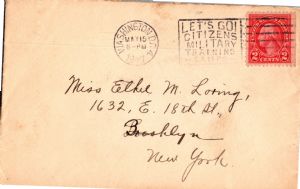 WASHINGTON, D.C.
MAY 15
6-PM
LET'S GO!
CITIZENS
MILITARY
TRAINING
2 CENTS 2
Miss Ethel M. Loring,
1632, E. 18th St.,
Brooklyn
New York.